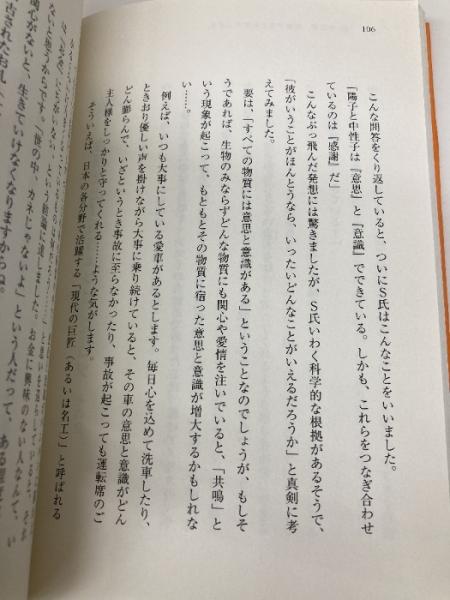 106
こんな問答をくり返していると、ついにS氏はこんなことをいいました。
「陽子と中性子は『意思』と『意識』でできている。しかも、これらをつなぎ合わせ
ているのは『感謝』だ」
こんなぶっ飛んだ発想には驚きましたが、S氏いわく科学的な根拠があるそうで、
「彼がいうことがほんとうなら、いったいどんなことがいえるだろうか」と真剣に考
えてみました。
要は、「すべての物質には意思と意識がある」ということなのでしょうが、もしそ
うであれば、生物のみならずどんな物質にも関心や愛情を注いでいると、「共鳴」と
いう現象が起こって、もともとその物質に宿った意思と意識が増大するかもしれな
い……。
例えば、いつも大事にしている愛車があるとします。毎日心を込めて洗車したり、
ときおり優しい声を掛けながら大事に乗り続けていると、その車の意思と意識がどん
どん膨らんで、いざというとき事故に至らなかったり、事故が起こっても運転席のご
主人様をしっかりと守ってくれる……ような気がします。
そういえば、日本の各分野で活躍する「現代の巨匠（あるいは名工）」と呼ばれる
ないと思うからです。「世の中、カネじゃないよ」という人だって、ある程度
関心がないと、生きていけなくなりますからね。